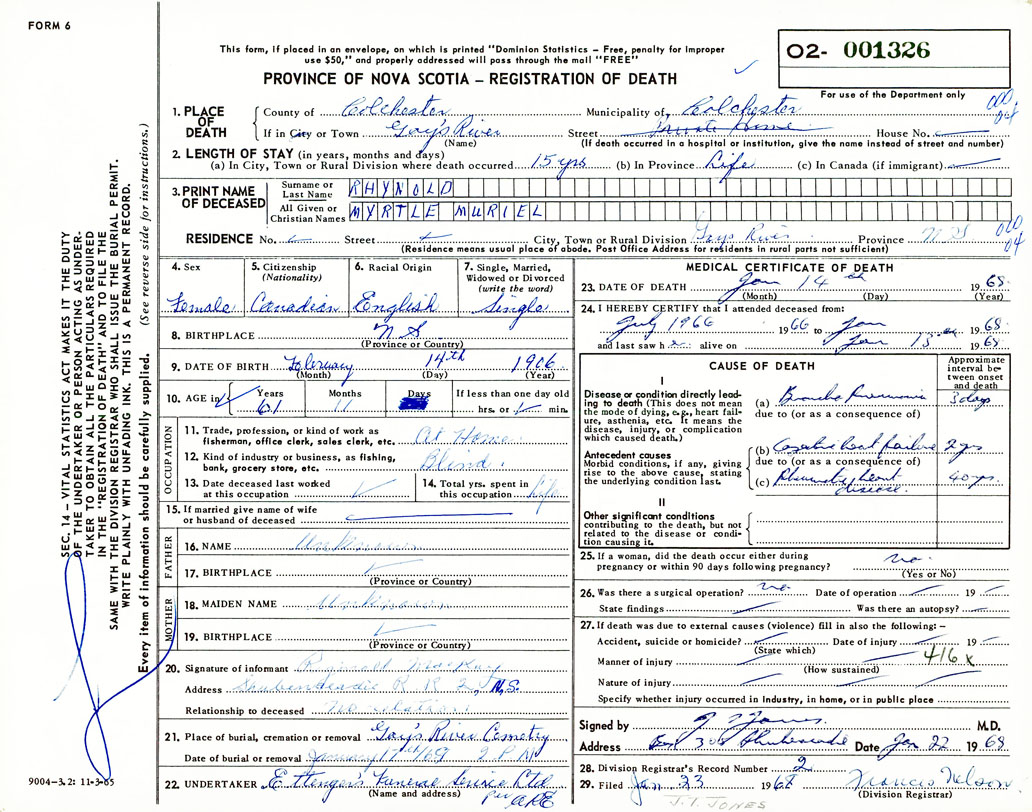 FORM 6
This form, if placed in an envelope, on which is printed "Dominion Statistics – Free, penalty for improper
use $50," and properly addressed will pass through the mail "FREE"
PROVINCE OF NOVA SCOTIA – REGISTRATION OF DEATH
O2- 001326
For use of the Department only
SEC. 14 – VITAL STATISTICS ACT MAKES IT THE DUTY
OF THE UNDERTAKER OR PERSON ACTING AS UNDER-
TAKER TO OBTAIN ALL THE PARTICULARS REQUIRED
IN THE "REGISTRATION OF DEATH" AND TO FILE THE
SAME WITH THE DIVISION REGISTRAR WHO SHALL ISSUE THE BURIAL PERMIT.
WRITE PLAINLY WITH UNFADING INK. THIS IS A PERMANENT RECORD.
Every item of information should be carefully supplied. (See reverse side for instructions.)
1. PLACE OF DEATH County of Colchester Municipality of Colchester
If in City or Town Gay's River Street Private Home House No.
(Name) (If death occurred in a hospital or institution, give the name instead of street and number)
2. LENGTH OF STAY (in years, months and days)
(a) In City, Town or Rural Division where death occurred 15 yrs (b) In Province Life (c) In Canada (if immigrant)
3. PRINT NAME OF DECEASED
Surname or Last Name RHYNOLD
All Given or Christian Names MYRTLE MURIEL
RESIDENCE No. Street City, Town or Rural Division Gays River Province N S
(Residence means usual place of abode. Post Office Address for residents in rural parts not sufficient)
4. Sex Female
5. Citizenship (Nationality) Canadian
6. Racial Origin English
7. Single, Married, Widowed or Divorced (write the word) Single
8. BIRTHPLACE N.S.
(Province or Country)
9. DATE OF BIRTH February 14th 1906
(Month) (Day) (Year)
10. AGE in Years 61 Months 11 Days If less than one day old hrs. or min.
OCCUPATION
11. Trade, profession, or kind of work as fisherman, office clerk, sales clerk, etc. At Home
12. Kind of industry or business, as fishing, bank, grocery store, etc. Blind.
13. Date deceased last worked at this occupation
14. Total yrs. spent in this occupation Life
15. If married give name of wife or husband of deceased
FATHER
16. NAME Unknown
17. BIRTHPLACE
(Province or Country)
MOTHER
18. MAIDEN NAME Unknown
19. BIRTHPLACE
(Province or Country)
20. Signature of informant
Address Shubenacadie R R 2, N.S.
Relationship to deceased No relation
21. Place of burial, cremation or removal Gay's River Cemetry
Date of burial or removal January 17th/69 2 P M
22. UNDERTAKER Ettinger's Funeral Service Ltd
(Name and address) per ARE
MEDICAL CERTIFICATE OF DEATH
23. DATE OF DEATH Jan 14th 1968
(Month) (Day) (Year)
24. I HEREBY CERTIFY that I attended deceased from:
July 1966 1966 to Jan 1968
and last saw her alive on Jan 13 1968
CAUSE OF DEATH
Approximate interval between onset and death
I
Disease or condition directly leading to death (This does not mean the mode of dying, e.g., heart failure, asthenia, etc. It means the disease, injury, or complication which caused death.)
(a) Broncho Pneumonia 3 days
due to (or as a consequence of)
Antecedent causes
Morbid conditions, if any, giving rise to the above cause, stating the underlying condition last.
(b) Congestive heart failure 2 yrs
due to (or as a consequence of)
(c) Rheumatic heart disease. 40 yrs.
II
Other significant conditions contributing to the death, but not related to the disease or condition causing it.
25. If a woman, did the death occur either during pregnancy or within 90 days following pregnancy? no.
(Yes or No)
26. Was there a surgical operation? no Date of operation 19
State findings Was there an autopsy?
27. If death was due to external causes (violence) fill in also the following: –
Accident, suicide or homicide? Date of injury 19
(State which)
Manner of injury 416 x
(How sustained)
Nature of injury
Specify whether injury occurred in industry, in home, or in public place
Signed by J T Jones. M.D.
Address Box 308 Shubenacadie Date Jan 22 1968
28. Division Registrar's Record Number 2
29. Filed Jan 23 1968 Francis Nelson
(Division Registrar)
J.T. JONES
9004–3.2: 11-3-65